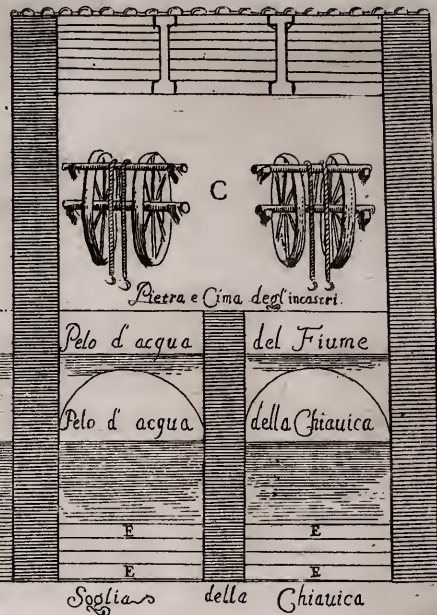 C
Pietra e Cima degl'incastri.
Pelo d'acqua del Fiume
Pelo d' acqua della Chiauica
E E
E E
Soglia della Chiauica